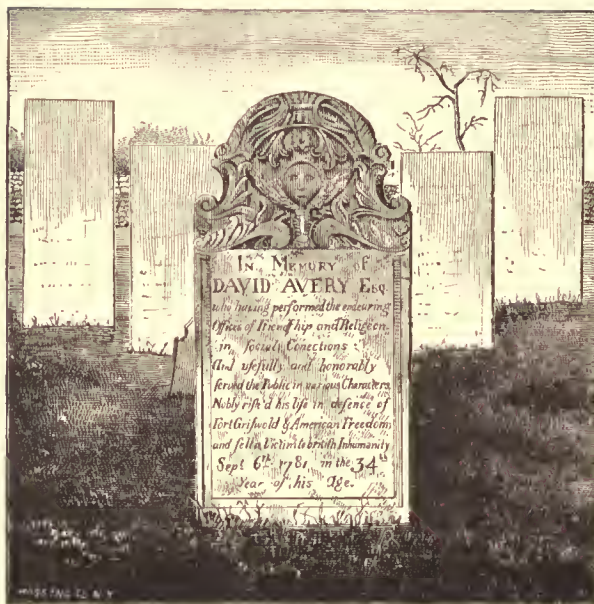 In Memory of
DAVID AVERY Esq.
who having performed the endearing
Offices of Friendſhip and Religion
in ſocial Conections :
And uſefully and honorably
ſerved the Public in various Characters,
Nobly riſk'd his life in defence of
Fort Griſwold & American Freedom,
and fell a Victim to britiſh Inhumanity
Sept 6th 1781 in the 34th
Year of his Age.